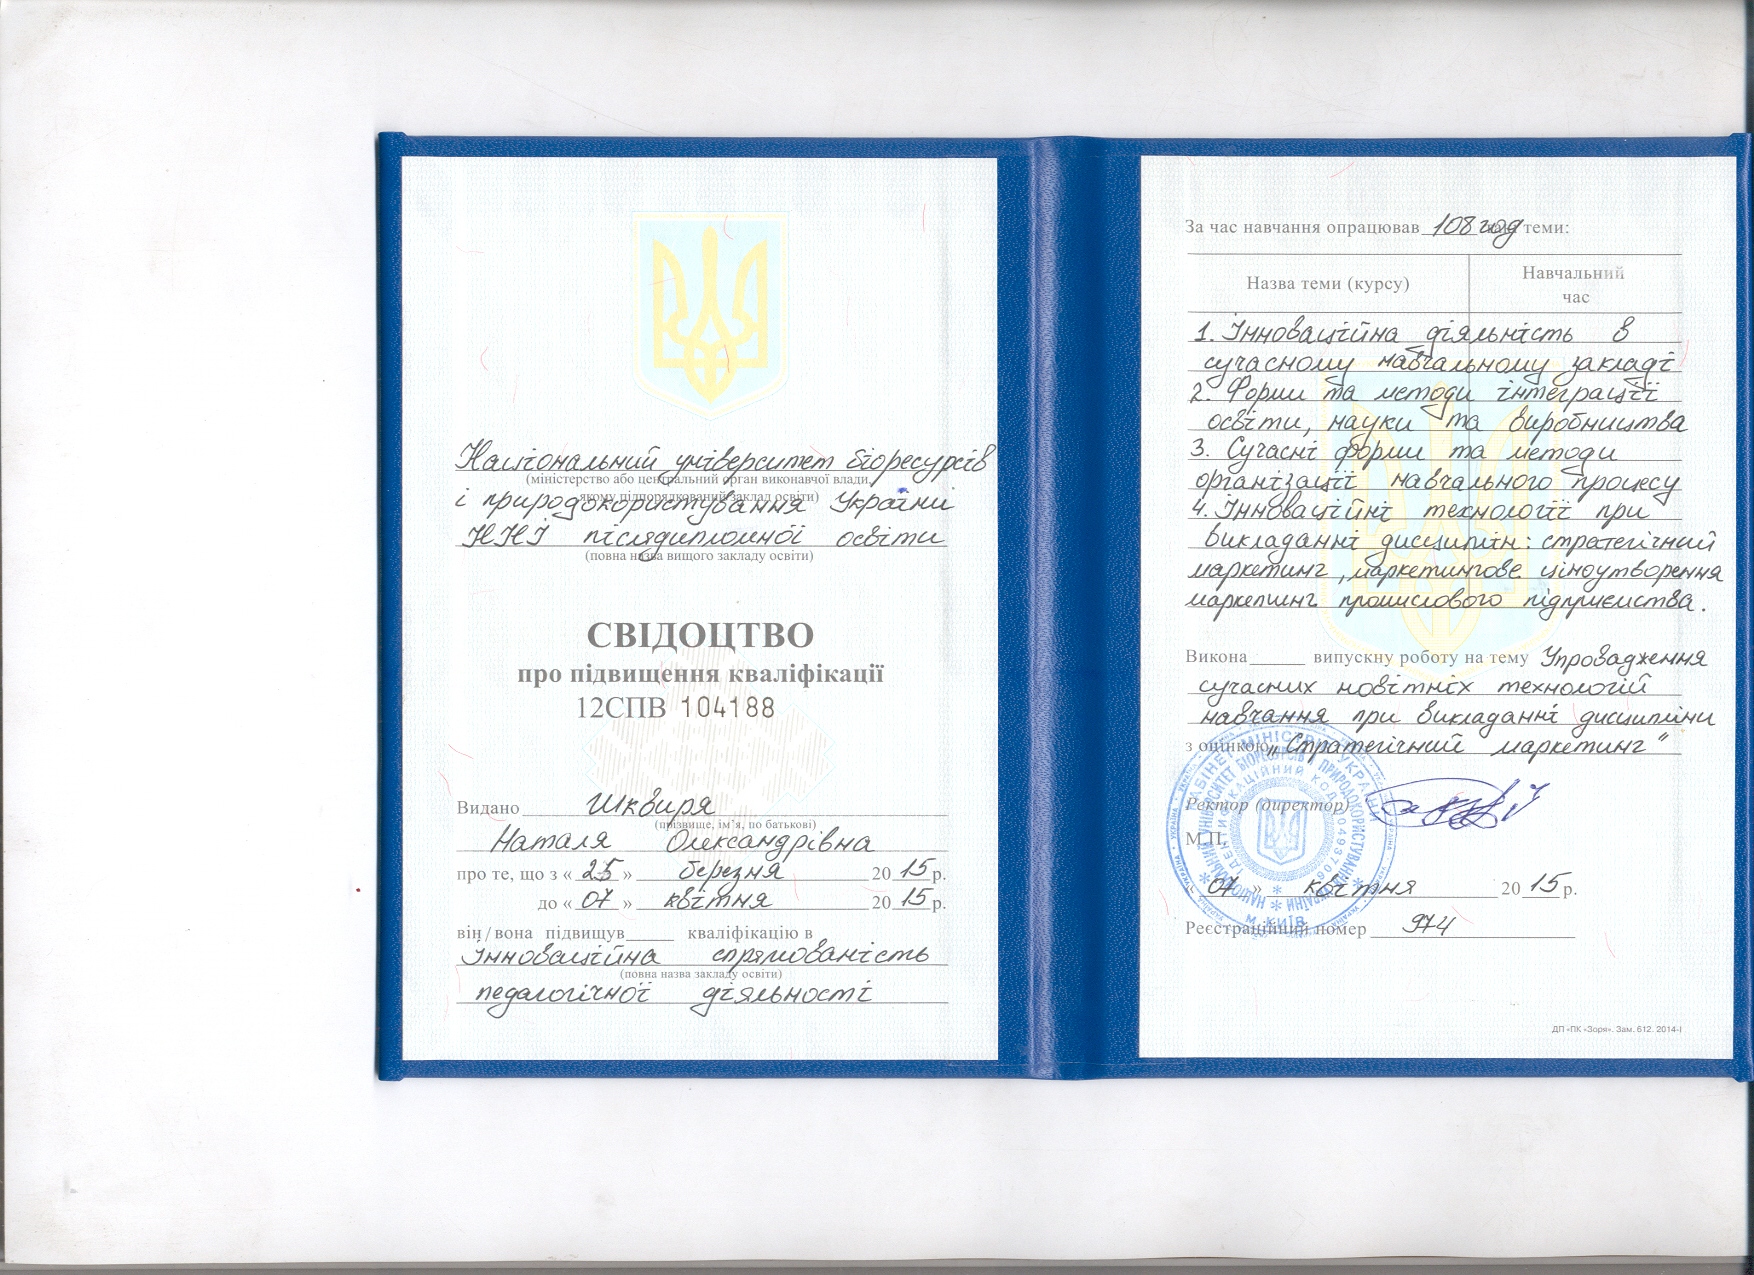 Національний університет біоресурсів
(міністерство або центральний орган виконавчої влади,
якому підпорядкований заклад освіти)
і природокористування України
ННІ післядипломної освіти
(повна назва вищого закладу освіти)
СВІДОЦТВО
про підвищення кваліфікації
12СПВ 104188
Видано Шквиря
(прізвище, ім'я, по батькові)
Наталя Олександрівна
про те, що з « 25 » березня 2015 р.
до « 07 » квітня 2015 р.
він/вона підвищув____ кваліфікацію в
Інноваційна спрямованість
(повна назва закладу освіти)
педагогічної діяльності
За час навчання опрацював 108 год теми:
Назва теми (курсу)
Навчальний
час
1. Інноваційна діяльність в
сучасному навчальному закладі
2. Форми та методи інтеграції
освіти, науки та виробництва
3. Сучасні форми та методи
організації навчального процесу
4. Інноваційні технології при
викладанні дисциплін: стратегічний
маркетинг, маркетингове ціноутворення
маркетинг промислового підприємства.
Викона____ випускну роботу на тему Упровадження
сучасних новітніх технологій
навчання при викладанні дисципліни
з оцінкою „Стратегічний маркетинг"
Ректор (директор)
М.П.
07 » квітня 2015 р.
Реєстраційний номер 974
КАБІНЕТ МІНІСТРІВ УКРАЇНИ
НАЦІОНАЛЬНИЙ УНІВЕРСИТЕТ БІОРЕСУРСІВ І ПРИРОДОКОРИСТУВАННЯ УКРАЇНИ
ІДЕНТИФІКАЦІЙНИЙ КОД 00493706
м. КИЇВ
ДП «ПК «Зоря». Зам. 612. 2014-І